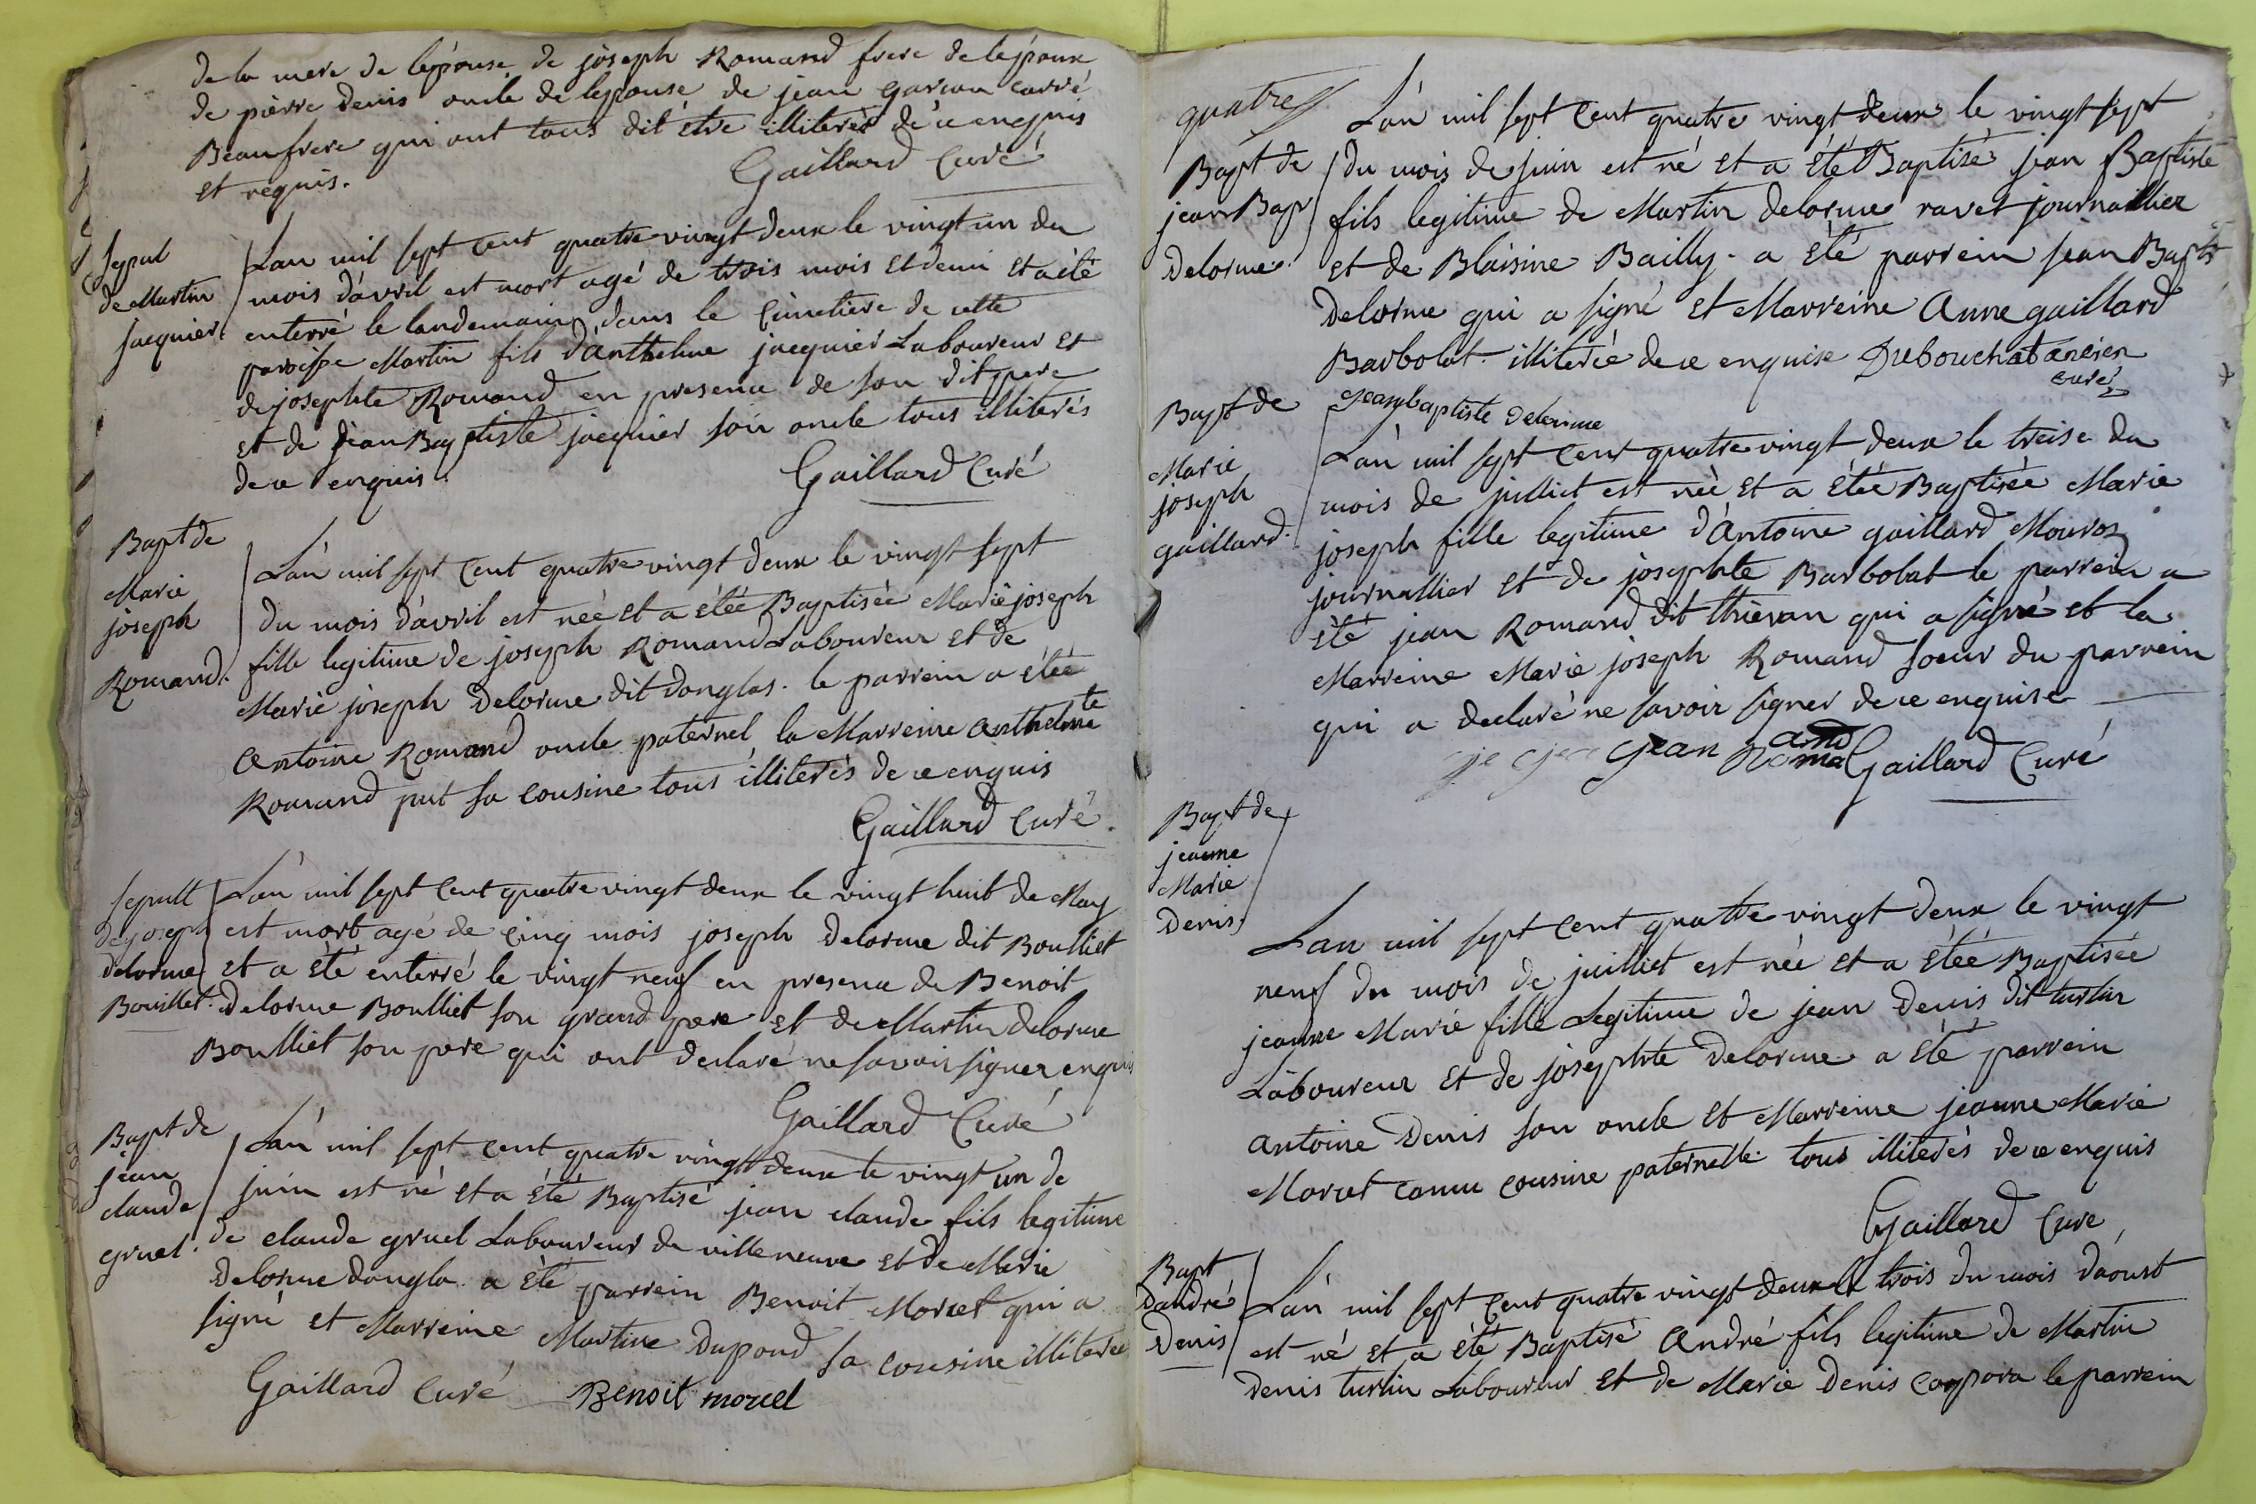 de la mere de l'épouse de joseph Romand frere de l'époux
de pièrre Denis oncle de lepouse de jean garcon carré
Beaufrere qui ont tous dit être illiterés de ce enquis
et requis.
Gaillard Curé
Sepul
de Martin
jacquier.
L'an mil sept cent quatre vingt deux le vingt un du
mois d'avril est mort agé de trois mois et demi et a été
enterré le landemain dans le cimetiere de cette
paroisse Martin fils d'anthelme jacquier Laboureur et
de josephte Romand en presence de son dit pere
et de jean Baptiste jacquier son oncle tous illiterés
de ce enquis.
Gaillard Curé
Bapt de
Marie
joseph
Romand.
L'an mil sept cent quatre vingt deux le vingt sept
du mois d'avril est née et a étée Baptisée Marie joseph
fille legitime de joseph Romand Laboureur et de
Marie joseph Delorme dit Donglas. le parrein a étée
antoine Romand oncle paternel la Marreine anthelmte
Romand put sa cousine tous illiterés de ce enquis
Gaillard Curé.
sepult
de joseph
Delorme
Bouillet.
L'an mil sept cent quatre vingt deux le vingt huit de May
est mort agé de cinq mois joseph Delorme dit Boulliet
et a été enterré le vingt neuf en presence de Benoit
Delorme Boulliet son grand pere et de Martin delorme
Boulliet son pere qui ont declaré ne savoir signer enquis
Gaillard Curé
Bapt de
jean
claude
gruel.
L'an mil sept cent quatre vingt deux le vingt un de
juin est né et a été Baptisé jean claude fils legitime
de claude gruel Laboureur de villeneuve et de Marie
Delorme dongla. a été parrein Benoit Morcet qui a
signé et Marreine Martine Dupond sa cousine illiterée
Gaillard Curé Benoit morcel
quatre
Bapt de
jean Bap
Delorme.
L'an mil sept cent quatre vingt deux le vingt sept
du mois de juin est né et a été Baptisé jean Baptiste
fils legitime de Martin delorme ravet journallier
et de Blaisine Bailly. a été parrein jean Bapte
Delorme qui a signé et Marreine Anne gaillard
Barbolat illiterée de ce enquise Dubouchat ancien
curé
jeanbaptiste delorme
Bapt de
Marie
joseph
gaillard.
L'an mil sept cent quatre vingt deux le treise du
mois de julliet est née et a étée Baptisée Marie
joseph fille legitime d'Antoine gaillard Mouroz
journallier et de josephte Barbolat le parrein a
été jean Romand dit thievan qui a signé et la
Marreine Marie joseph Romand soeur du parrein
qui a declaré ne savoir signer de ce enquise
je jea jean Romaand Gaillard Curé
Bapt de
jeanne
Marie
Denis
L'an mil sept cent quatre vingt deux le vingt
neuf du mois de juilliet est née et a étée Baptisée
jeanne Marie fille Legitime de jean Denis dit turlin
Laboureur et de josephte Delorme a été parrein
antoine Denis son oncle et Marreine jeanne Marie
Morcet canu cousine paternelle. tous illiterés de ce enquis
Gaillard Curé
Bapt
d'andré
Denis
L'an mil sept cent quatre vingt deux le trois du mois d'aoust
est né et a été Baptisé André fils legitime de Martin
Denis turlin Laboureur et de Marie Denis corpora le parrein